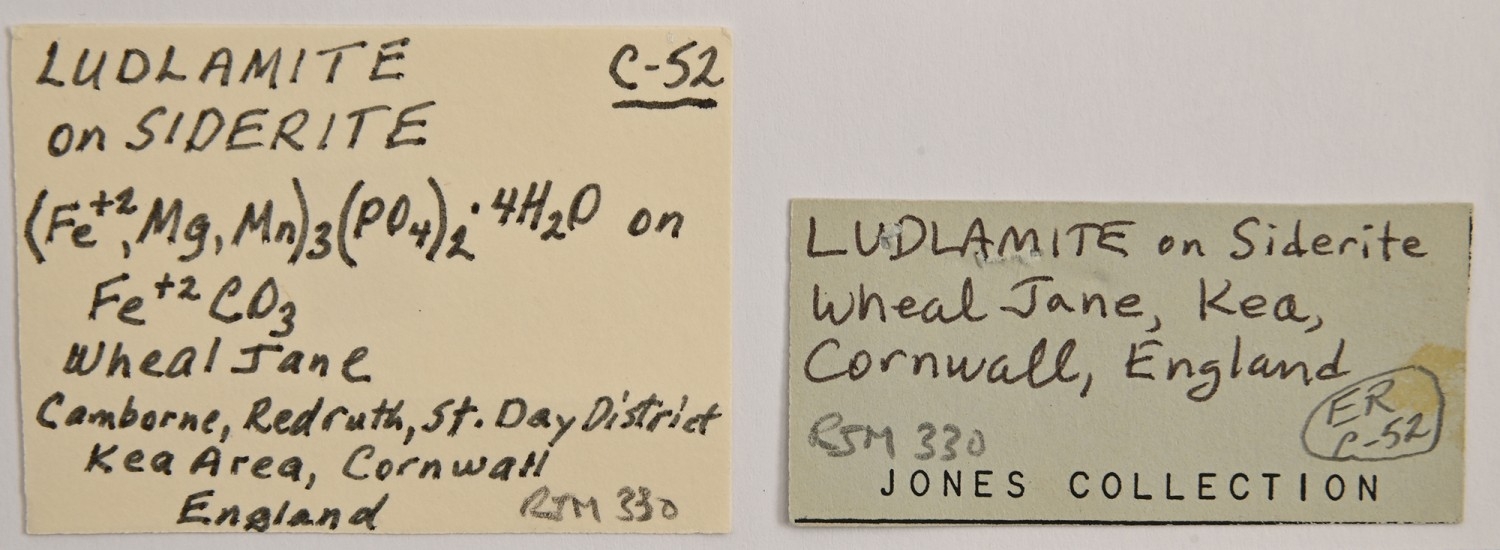 LUDLAMITE C-52
on SIDERITE
(Fe⁺²,Mg,Mn)₃(PO₄)₂·4H₂O on
Fe⁺²CO₃
Wheal Jane
Camborne, Redruth, St. Day District
Kea Area, Cornwall
England RSM 330
LUDLAMITE on Siderite
Wheal Jane, Kea,
Cornwall, England
ER
C-52
RSM 330
JONES COLLECTION